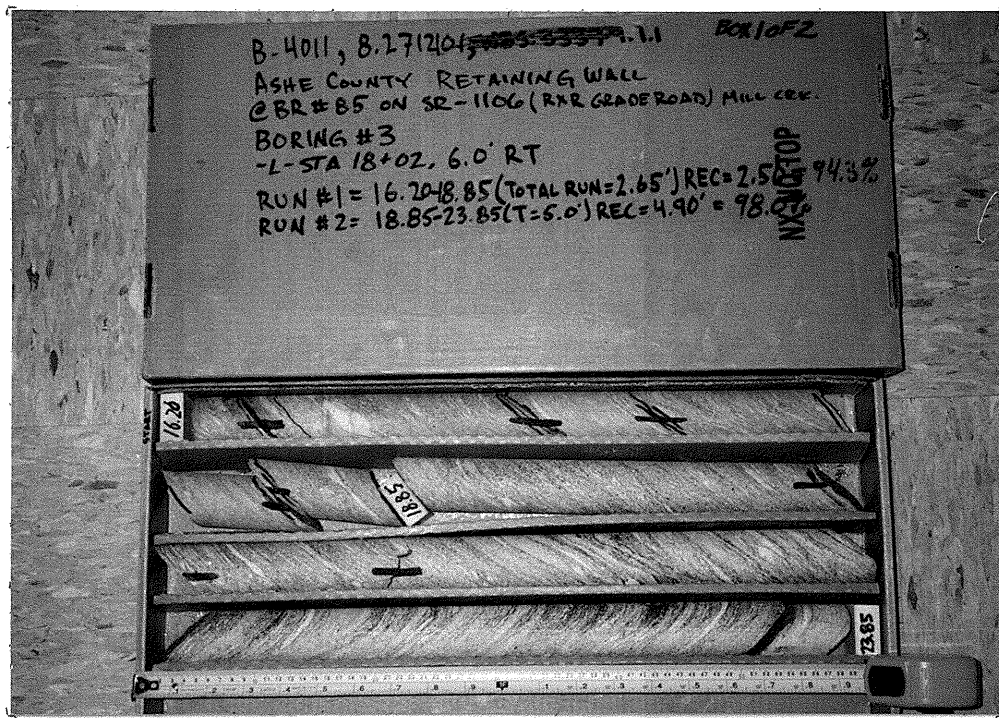 B-4011, 8.2712101, 1.1
BOX 1 OF 2
ASHE COUNTY RETAINING WALL
@ BR # 85 ON SR-1106 (RXR GRADE ROAD) MILL CRK.
BORING #3
-L- STA 18+02, 6.0' RT
RUN #1 = 16.20-18.85 (TOTAL RUN = 2.65') REC = 2.50' = 94.3%
RUN #2 = 18.85-23.85 (T = 5.0') REC = 4.90' = 98.0%
TOP
START
16.20
18.85
23.85